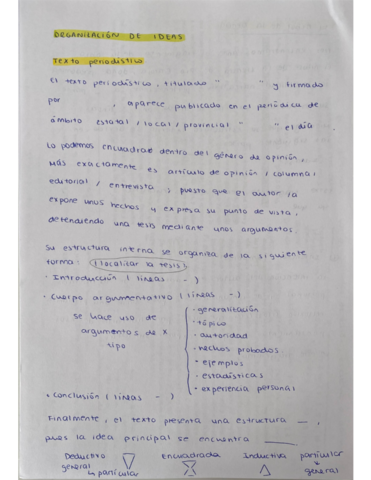 ORGANIZACIÓN DE IDEAS
Texto periodístico
El texto periodístico, titulado " " y firmado
por , aparece publicado en el periódico de
ámbito estatal / local / provincial " " el día
Lo podemos encuadrar dentro del género de opinión,
más exactamente es artículo de opinión / columna /
editorial / entrevista ; puesto que el autor/a
expone unos hechos y expresa su punto de vista,
defendiendo una tesis mediante unos argumentos.
Su estructura interna se organiza de la siguiente
forma: (localizar la tesis)
· Introducción (líneas - )
· Cuerpo argumentativo (líneas - )
se hace uso de
argumentos de X
tipo
· generalización
· tópico
· autoridad
· hechos probados
· ejemplos
· estadísticas
· experiencia personal
· Conclusión (líneas - )
Finalmente, el texto presenta una estructura __,
pues la idea principal se encuentra ____
Deductiva Encuadrada Inductiva particular
general general
↳ particular